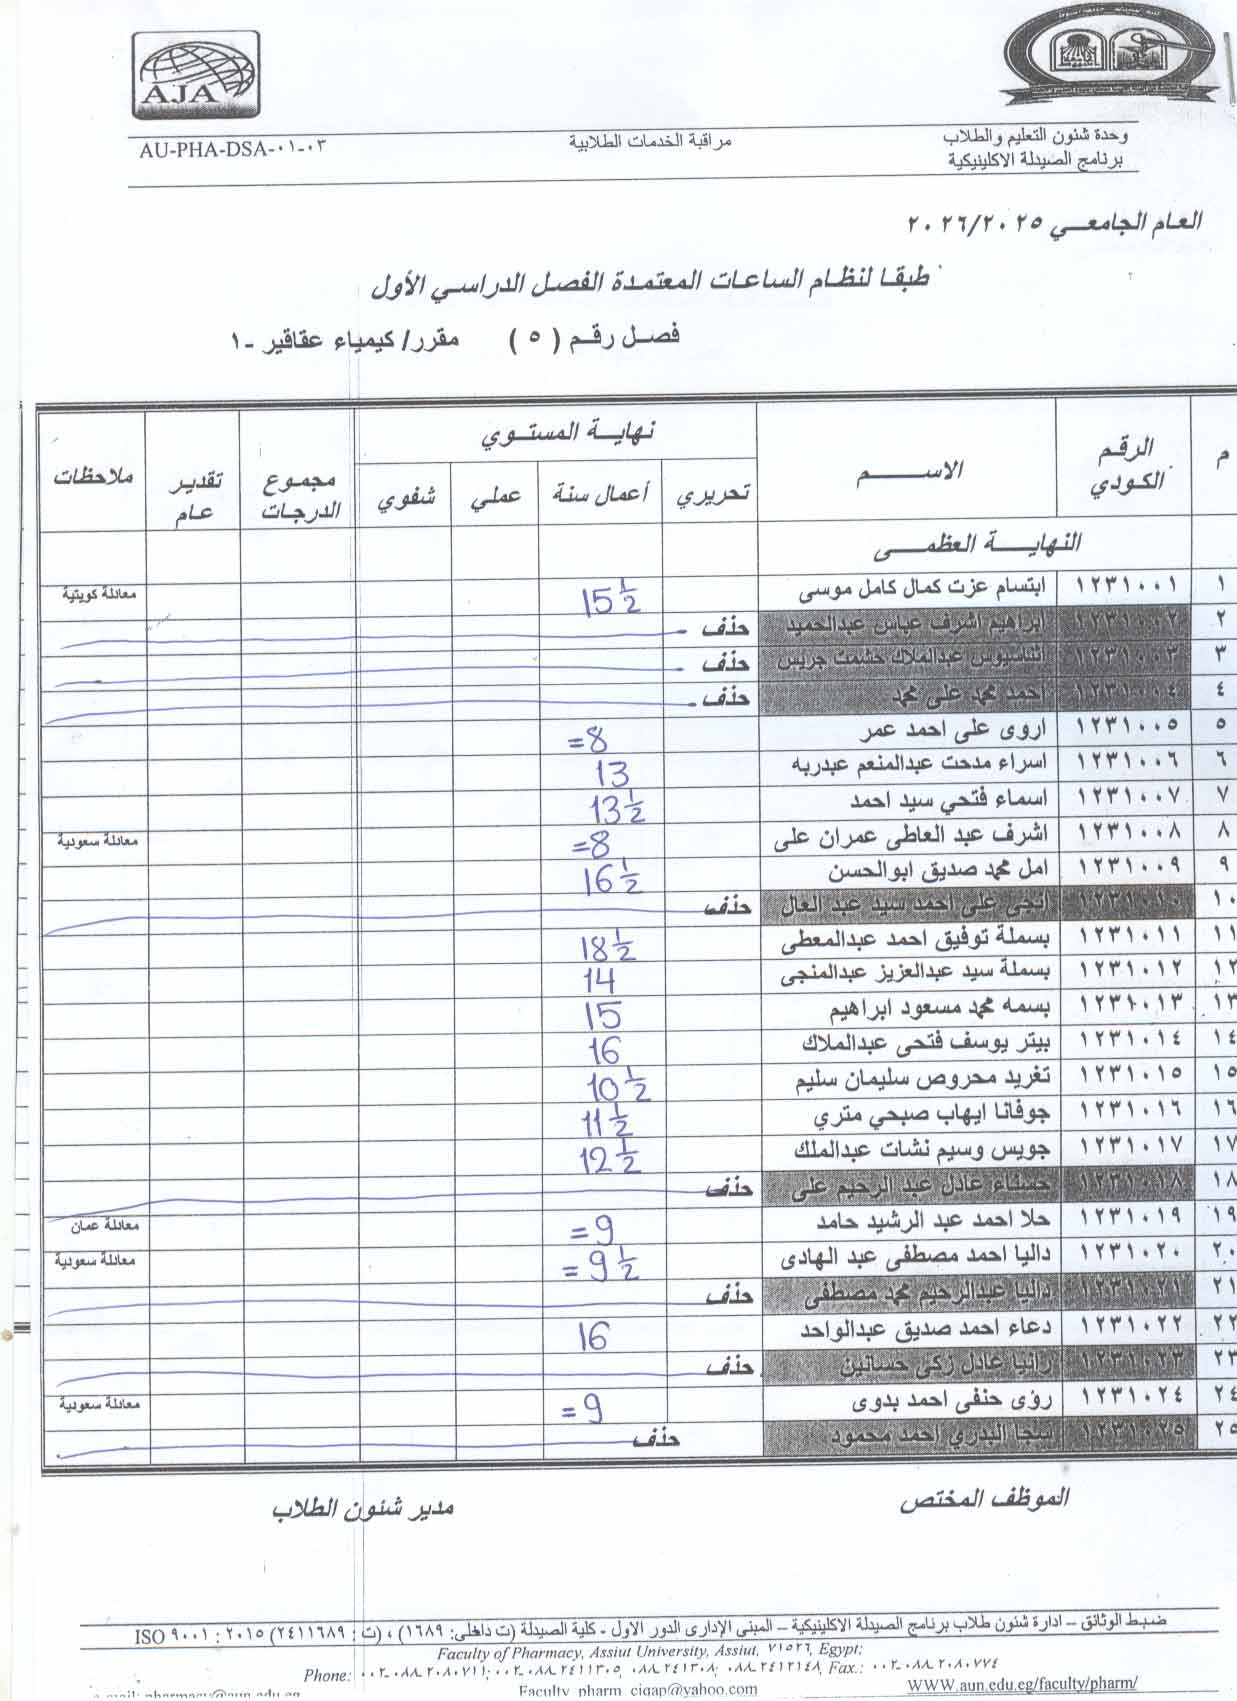 AJA
AU-PHA-DSA-٠١-٠٣
مراقبة الخدمات الطلابية
وحدة شئون التعليم والطلاب
برنامج الصيدلة الاكلينيكية
العام الجامعي ٢٠٢٦/٢٠٢٥
طبقا لنظام الساعات المعتمدة الفصل الدراسي الأول
فصل رقم ( ٥ ) مقرر/ كيمياء عقاقير -١
م الرقم الكودي الاسم نهاية المستوي مجموع الدرجات تقدير عام ملاحظات
تحريري أعمال سنة عملي شفوي
النهاية العظمى
١ ١٢٣١٠٠١ ابتسام عزت كمال كامل موسى 15 1/2 معادلة كويتية
٢ ١٢٣١٠٠٢ ابراهيم اشرف عباس عبدالحميد حذف
٣ ١٢٣١٠٠٣ عبدالملاك حشمت جريس حذف
٤ ١٢٣١٠٠٤ احمد محمد على محمد حذف
٥ ١٢٣١٠٠٥ اروى على احمد عمر 8=
٦ ١٢٣١٠٠٦ اسراء مدحت عبدالمنعم عبدربه 13
٧ ١٢٣١٠٠٧ اسماء فتحي سيد احمد 13 1/2
٨ ١٢٣١٠٠٨ اشرف عبد العاطى عمران على 8= معادلة سعودية
٩ ١٢٣١٠٠٩ امل محمد صديق ابوالحسن 16 1/2
١٠ ١٢٣١٠١٠ انجى على احمد سيد عبد العال حذف
١١ ١٢٣١٠١١ بسملة توفيق احمد عبدالمعطى 18 1/2
١٢ ١٢٣١٠١٢ بسملة سيد عبدالعزيز عبدالمنجى 14
١٣ ١٢٣١٠١٣ بسمه محمد مسعود ابراهيم 15
١٤ ١٢٣١٠١٤ بيتر يوسف فتحى عبدالملاك 16
١٥ ١٢٣١٠١٥ تغريد محروص سليمان سليم 10 1/2
١٦ ١٢٣١٠١٦ جوفانا ايهاب صبحي متري 11 1/2
١٧ ١٢٣١٠١٧ جويس وسيم نشات عبدالملك 12 1/2
١٨ ١٢٣١٠١٨ حسناء عادل عبد الرحيم على حذف
١٩ ١٢٣١٠١٩ حلا احمد عبد الرشيد حامد 9= معادلة عمان
٢٠ ١٢٣١٠٢٠ داليا احمد مصطفى عبد الهادى 9 1/2= معادلة سعودية
٢١ ١٢٣١٠٢١ داليا عبدالرحيم محمد مصطفى حذف
٢٢ ١٢٣١٠٢٢ دعاء احمد صديق عبدالواحد 16
٢٣ ١٢٣١٠٢٣ رانيا عادل زكى حسانين حذف
٢٤ ١٢٣١٠٢٤ رؤى حنفى احمد بدوى 9= معادلة سعودية
٢٥ ١٢٣١٠٢٥ سجا البدري احمد محمود حذف
الموظف المختص
مدير شئون الطلاب
ضبط الوثائق – ادارة شئون طلاب برنامج الصيدلة الاكلينيكية – المبنى الإدارى الدور الاول - كلية الصيدلة (ت داخلى: ١٦٨٩) ، (ت : ٢٤١١٦٨٩) ISO ٩٠٠١ : ٢٠١٥
Faculty of Pharmacy, Assiut University, Assiut, ٧١٥٢٦, Egypt;
Phone: ٠٠٢-٠٨٨-٢٠٨٠٧١١; ٠٠٢-٠٨٨-٢٤١١٣٠٥, ٠٨٨-٢٤١٣٠٨; ٠٨٨-٢٤١٢١٤٨, Fax.: ٠٠٢-٠٨٨-٢٠٨٠٧٧٤
e-mail: pharmacy@aun.edu.eg Faculty_pharm_ciqap@yahoo.com WWW.aun.edu.eg/faculty/pharm/